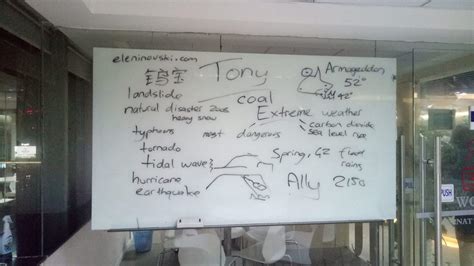 eleninovski.com
雪宝 Tony Armageddon
52°
landslide 42°
coal
natural disaster 2008 Extreme weather
heavy snow carbon dioxide
typhoons most dangerous sea level rise
tornado
tidal wave Spring, 42 flower
rains
hurricane
earthquake Ally 2150
PUSH
PUSH
WO